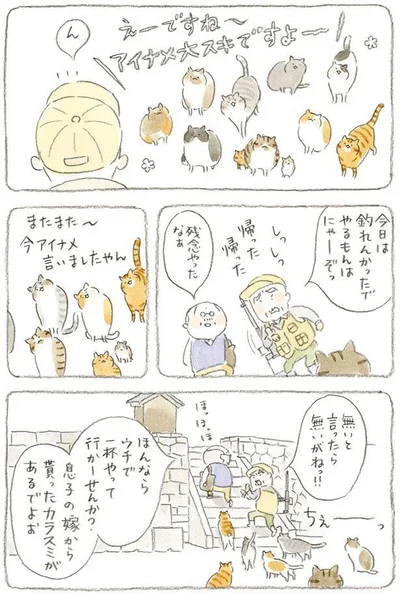 えーですね〜
アイナメ大スキですよ——
ん
今日は
釣れんかったで
やるもんは
にゃーぞっ
しっしっ
帰った
帰った
残念やった
なぁ
またまた〜
今アイナメ
言いましたやん
無いと
言ったら
無いがねっ!!
ちぇ——っ
ほっほっほ
ほんなら
ウチで
一杯やって
行かーせんか?
息子の嫁から
貰ったカラスミが
あるでよぉ